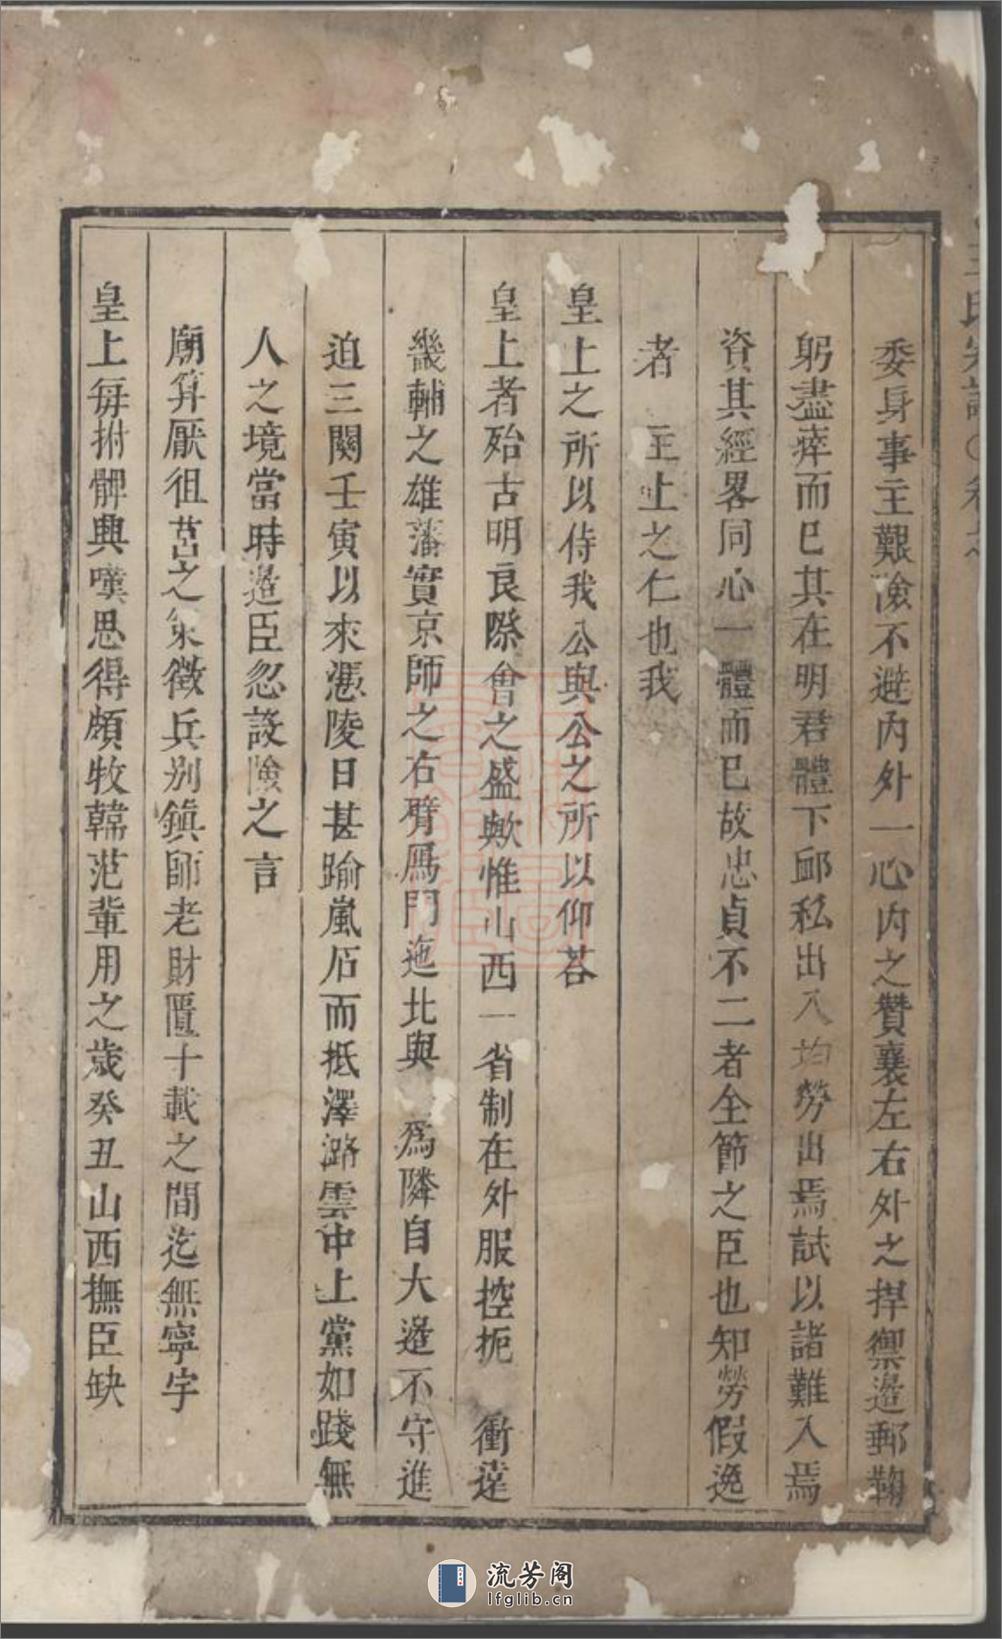 王氏宗譜〇卷之
委身事主艱險不避內外一心內之贊襄左右外之捍禦邉郵鞠
躬盡瘁而已其在明君體下䘏私出入均勞出焉試以諸難入焉
資其經畧同心一體而已故忠貞不二者全節之臣也知勞假逸
者 主上之仁也我
皇上之所以侍我公與公之所以仰荅
皇上者殆古明良際會之盛歟惟山西一省制在外服控扼 衝遠
畿輔之雄藩實京師之右臂鴈門迤北與 爲隣自大邉不守進
迫三關壬寅以來憑陵日甚踰嵐石而抵澤潞雲中上黨如踐無
人之境當時邉臣忽設險之言
廟筭厭徂莒之眾徵兵别鎮師老財匱十載之間迄無寧宇
皇上每拊髀興嘆思得頗牧韓范輩用之歲癸丑山西撫臣缺
流芳阁
lfglib.cn